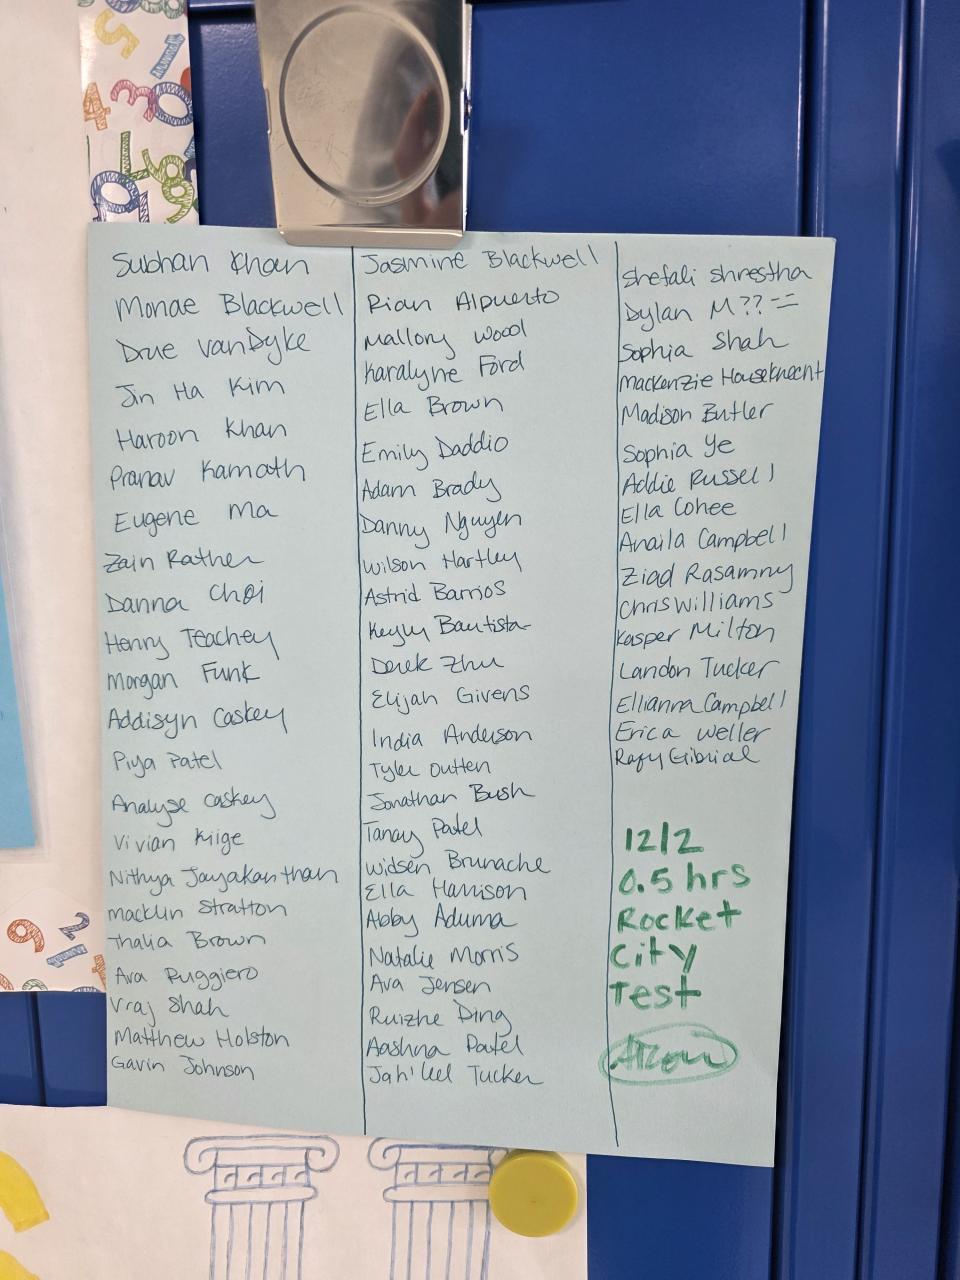 Subhan Khan
Monae Blackwell
Drue VanDyke
Jin Ha Kim
Haroon Khan
Pranav Kamath
Eugene Ma
Zain Rather
Danna Choi
Henry Teachey
Morgan Funk
Addisyn Caskey
Piya Patel
Analyse Caskey
Vivian Kiige
Nithya Jayakanthan
Macklin Stratton
Thalia Brown
Ava Ruggiero
Vraj Shah
Matthew Holston
Gavin Johnson
Jasmine Blackwell
Rian Alpuerto
Mallory Wood
Karalyne Ford
Ella Brown
Emily Daddio
Adam Brady
Danny Nguyen
Wilson Hartley
Astrid Barrios
Bautista
Derek Zhu
Elijah Givens
India Anderson
Tyler Outten
Jonathan Bush
Tanay Patel
Widsen Brunache
Ella Harrison
Abby Aduma
Natalie Morris
Ava Jensen
Ruizhe Ding
Aashna Patel
Tucker
Shefali Shrestha
Dylan M??
Sophia Shah
Mackenzie Houseknecht
Madison Butler
Sophia Ye
Addie Russell
Ella Cohee
Anaila Campbell
Ziad Rasamny
Chris Williams
Kasper Milton
Landon Tucker
Ellianna Campbell
Erica Weller
12/2
0.5 hrs
Rocket
City
Test